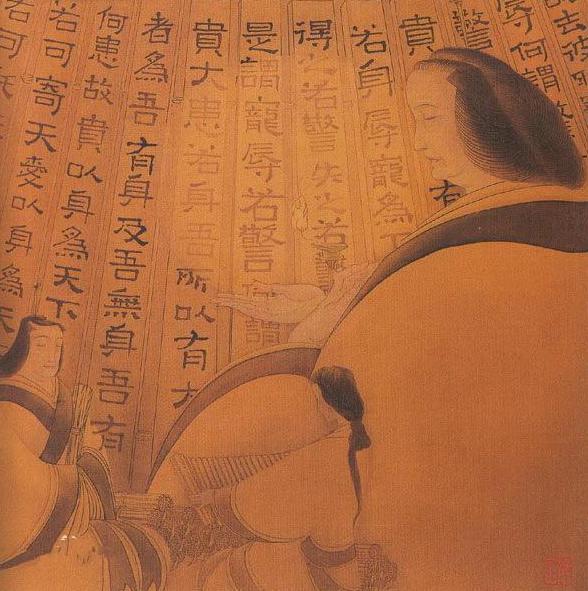 去彼
辱何謂
驚
貴
有
若身辱寵為下
得之若驚失之若
是謂寵辱若驚何謂
貴大患若身吾所以有大
者為吾有身及吾無身吾有
何患故貴以身為天下
若可寄天愛以身為天
若可